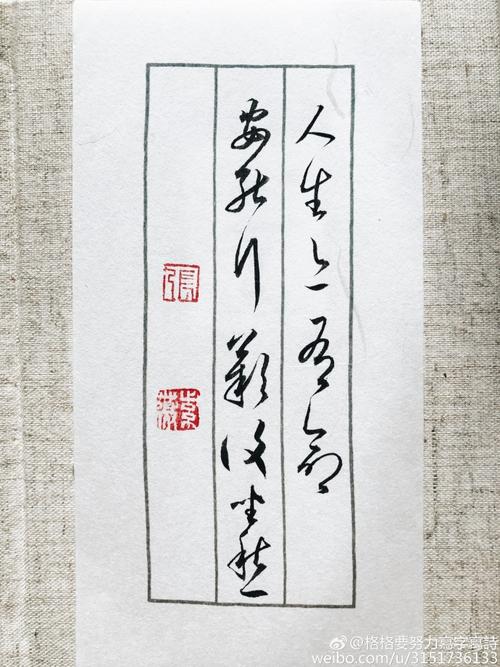 人生亦有命
安能行歎復坐愁
@格格要努力寫字寫詩
weibo.com/u/3151736133